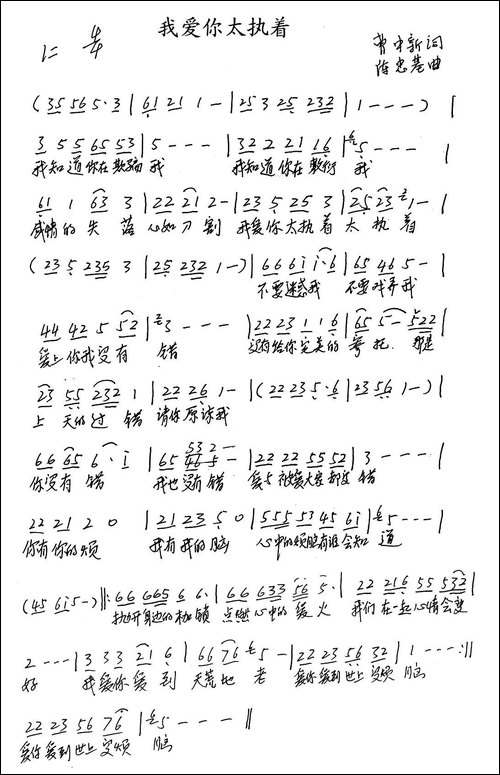 我爱你太执着
曹中新词
陈忠基曲
(35 56 5· 3 | 61 21 1 - | 25 3 25 232 | 1 - - - ) |
3 5 5 65 53 | 5 - - - | 32 2 21 16 | 5 - - - |
我知道你在欺骗我 我知道你在敷衍 我
61 1 63 3 | 22 21 2 - | 23 5 25 3 | 25 23 1 - |
感情的失落 心如刀割 我爱你太执着 太执着
(23 5 235 3 | 25 232 1 -) | 66 6i i·6 | 65 46 5 - |
不要迷惑我 不要戏弄我
44 42 5 52 | 3 - - - | 22 23 1 1 6 | 65 5 - 522 |
爱上你我没有 错 你完美的
23 55 232 1 | 22 26 1 - | (22 23 5·6 | 23 56 1 -) |
上天的过错 请你原谅我
66 65 6· i | 65 - - | 22 22 55 52 | 3 - - - |
你没有错 我也没有错 错
22 21 2 0 | 21 23 5 0 | 555 53 45 6i | 5 - - - |
你有你的烦 我有我的恼 心中的烦恼有谁会知 道
(45 6i 5 -) ‖: 66 665 6 6· | 66 633 56 5· | 22 216 55 532 |
抛开身边的枷锁 点燃心中的爱火 我们在一起心情会变
2 - - - | 3 3 3 21 6 | 66 76 5 - | 22 23 56 32 | 1 - - - :‖
好 我爱你爱到 天荒地老 爱你爱到世上没烦 恼
22 23 56 76 | 5 - - - ‖
爱你爱到世上没烦 恼